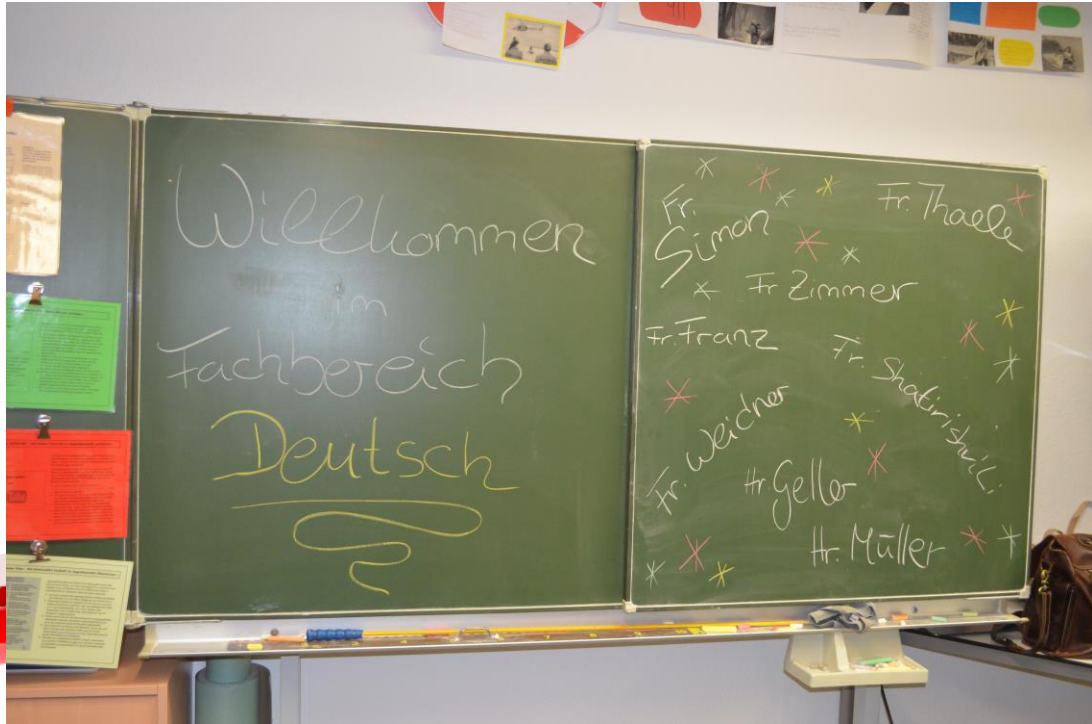 Willkommen
im
Fachbereich
Deutsch
Fr.
Simon
Fr. Thaele
Fr Zimmer
Fr. Franz
Fr. Shatirishvili
Fr. Weidner
Hr. Geller
Hr. Müller